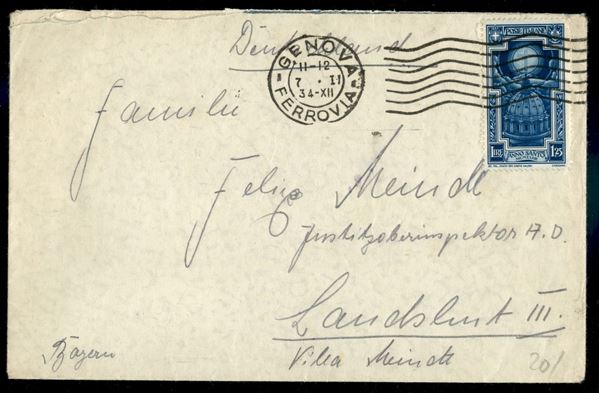 Deutschland
GENOVA
11-12
7 · II
34-XII
FERROVIA
POSTE ITALIANE
LIRE 1,25
ANNO SANTO
Familie
Felix Meindl
Justitzoberinspektor A.D.
Landshut III.
Bayern
Villa Meindl
20/